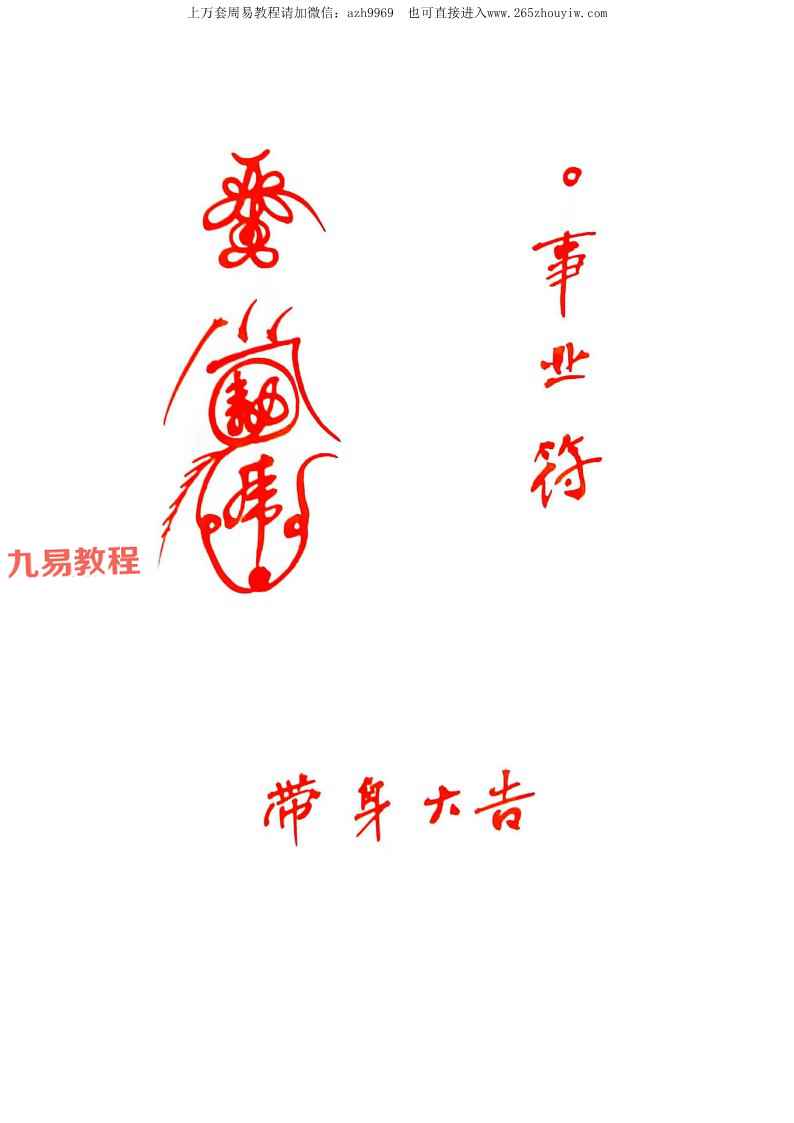 上万套周易教程请加微信: azh9969 也可直接进入www.265zhouyiw.com
事业符
九易教程
带身大吉